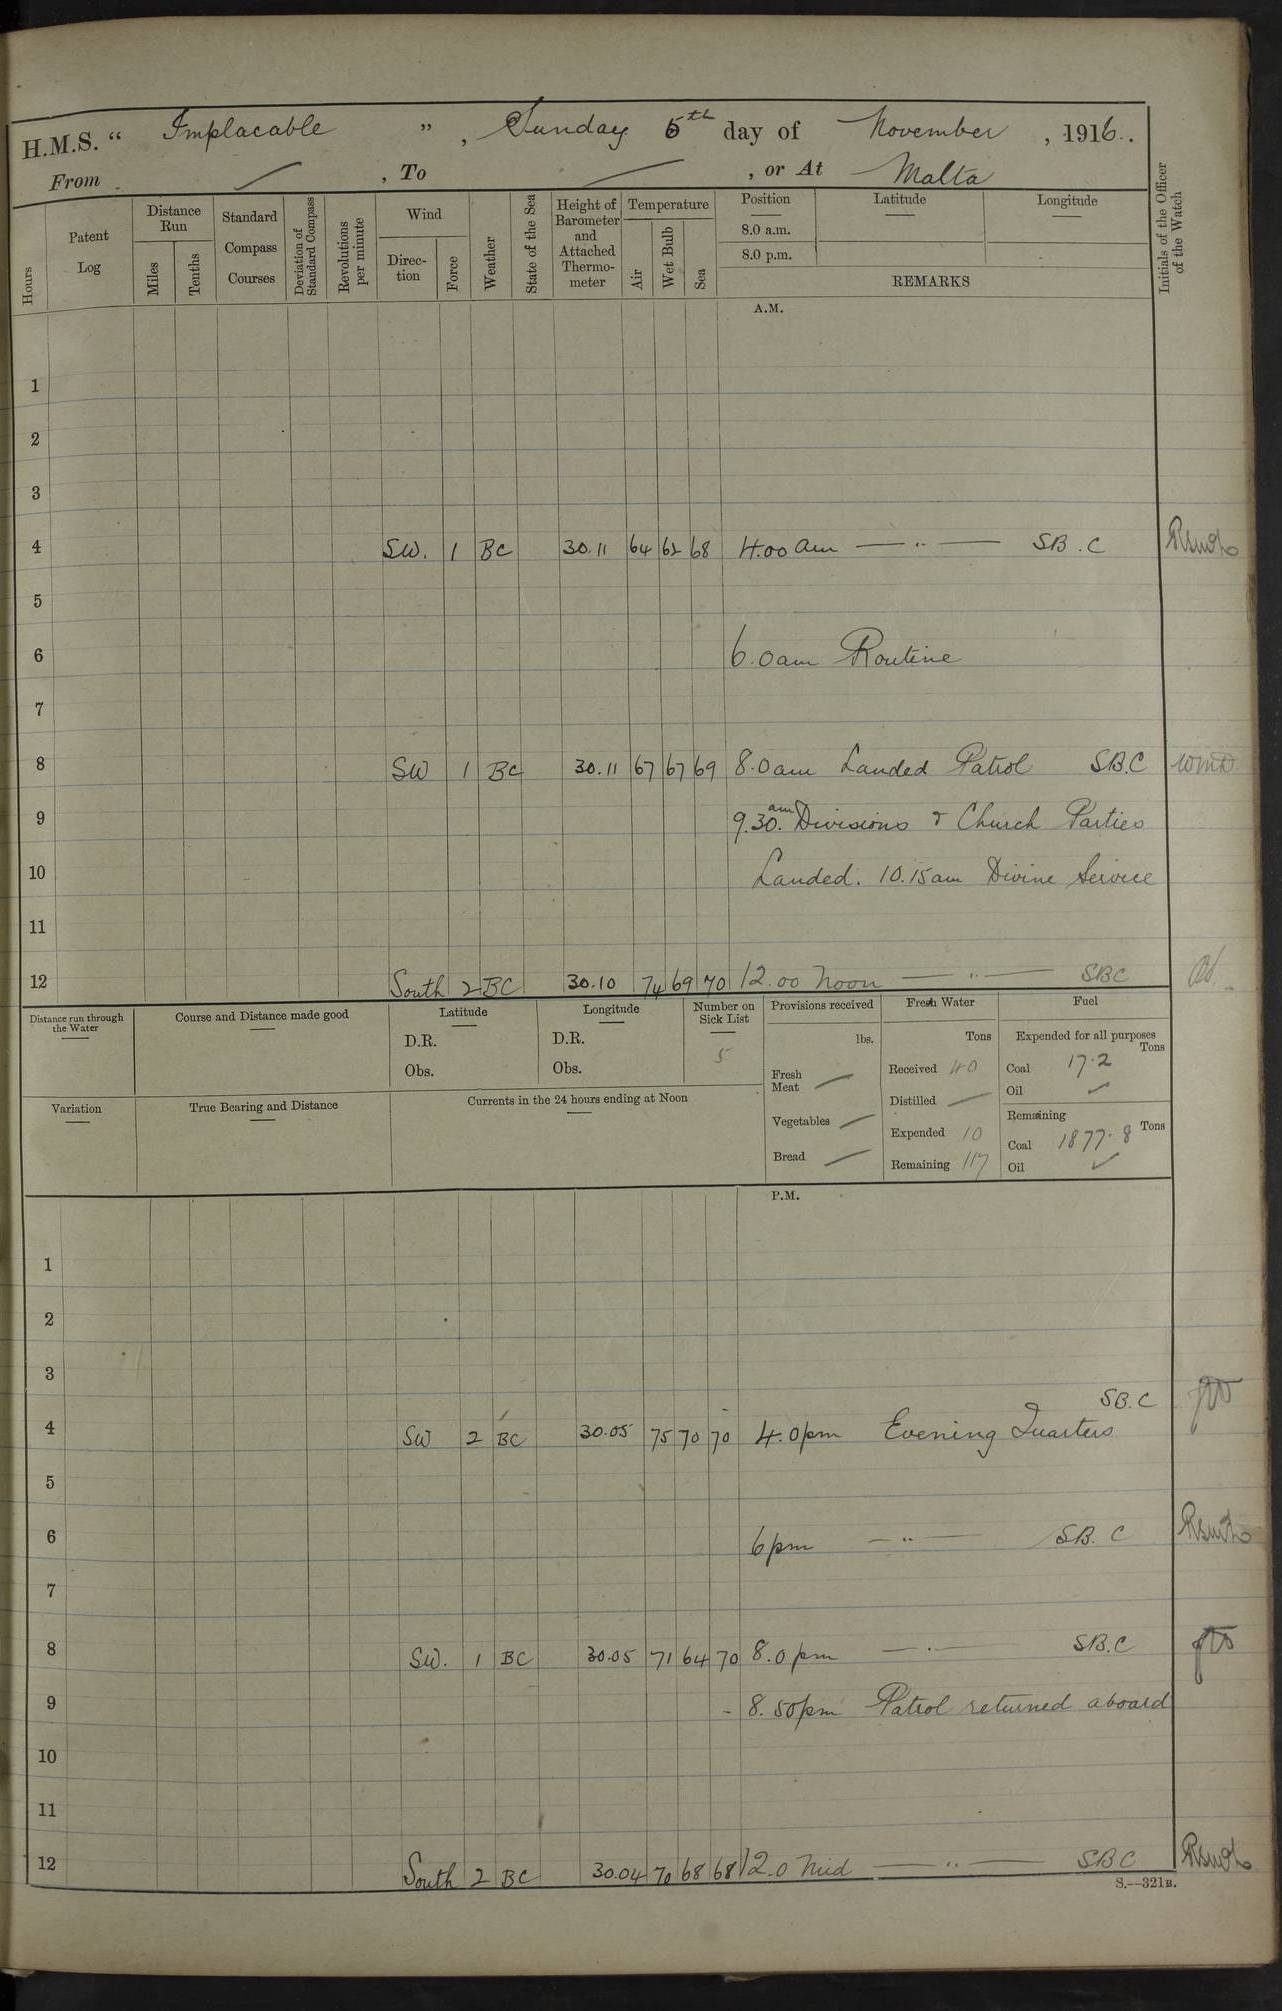 H.M.S. “ Implacable ” , Sunday 5th day of November , 1916.
From ✓ , To — , or At Malta
Hours
Patent Log
Distance Run
Miles
Tenths
Standard Compass Courses
Deviation of Standard Compass
Revolutions per minute
Wind
Direc-tion
Force
Weather
State of the Sea
Height of Barometer and Attached Thermo-meter
Temperature
Air
Wet Bulb
Sea
Position Latitude Longitude
8.0 a.m.
8.0 p.m.
REMARKS
Initials of the Officer of the Watch
A.M.
1
2
3
4 SW. 1 BC 30.11 64 62 68 4.00 am — " — SB.C
5
6 6.0am Routine
7
8 SW 1 BC 30.11 67 67 69 8.0am Landed Patrol SB.C
9 9.30.am Divisions & Church Parties
10 Landed. 10.15am Divine Service
11
12 South 2 BC 30.10 74 69 70 12.00 Noon — " — SBC
Distance run through the Water
Course and Distance made good
Latitude
D.R.
Obs.
Longitude
D.R.
Obs.
Number on Sick List
5
Provisions received
lbs.
Fresh Meat —
Vegetables —
Bread —
Fresh Water
Tons
Received 40
Distilled —
Expended 10
Remaining 117
Fuel
Expended for all purposes
Tons
Coal 17.2
Oil ✓
Remaining
Tons
Coal 1877.8
Oil ✓
Variation
True Bearing and Distance
Currents in the 24 hours ending at Noon
P.M.
1
2
3
SB.C
4 SW 2 BC 30.05 75 70 70 4.0pm Evening Quarters
5
6 6pm — " — SB.C
7
8 SW. 1 BC 30.05 71 64 70 8.0pm — " — SB.C
9 - 8.50pm Patrol returned aboard
10
11
12 South 2 BC 30.04 70 68 68 12.0 Mid — " — SBC
S.—321B.